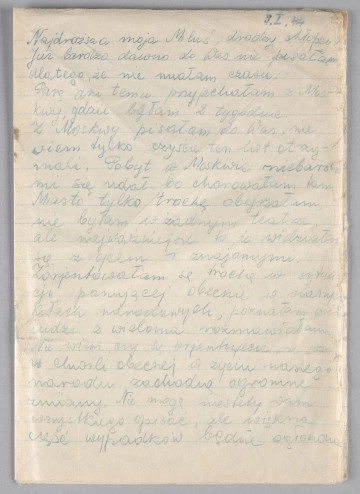 9.X.44
Najdroższa moja Miluś, drodzy
Już bardzo dawno do Was nie pisałam
dlatego, że nie miałam czasu.
Parę dni temu przyjechałam z Mos-
kwy, gdzie byłam 2 tygodnie
Z Moskwy pisałam do Was, nie
wiem tylko czyście ten list otrzy-
mali. Pobyt w Moskwie niebardzo
mi się udał bo chorowałam tam
Miasto tylko trochę obejrzałam,
nie byłam w żadnym teatrze,
ale najważniejsze to, że widziałam
się z ojcem i znajomymi.
Zorjentowałam się trochę w sytua-
cji panującej obecnie w naszych
narodowych, poznałam
ludzi z wieloma rozmawiałam
się orjentujecie, że
w chwili obecnej w życiu naszego
narodu zachodzą ogromne
zmiany. Nie mogę niestety Wam
wszystkiego opisać, ale większa
część wypadków będzie